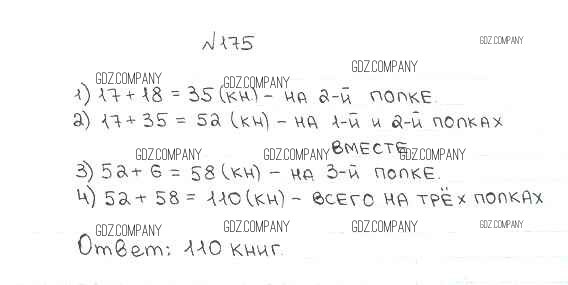 №175
GDZ.COMPANY
GDZ.COMPANY
GDZ.COMPANY GDZ.COMPANY
1) 17 + 18 = 35 (кн) – на 2-й полке.
2) 17 + 35 = 52 (кн) – на 1-й и 2-й полках
вместе
GDZ.COMPANY GDZ.COMPANY GDZ.COMPANY
3) 52 + 6 = 58 (кн) – на 3-й полке.
4) 52 + 58 = 110 (кн) – всего на трёх полках
GDZ.COMPANY GDZ.COMPANY GDZ.COMPANY GDZ.COMPANY
Ответ: 110 книг.